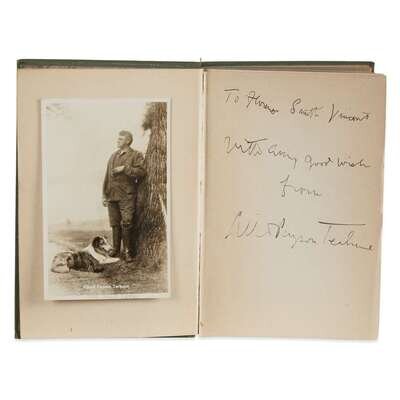 Albert Payson Terhune
To Florence Smith Vincent
With every good wish
from
Albert Payson Terhune